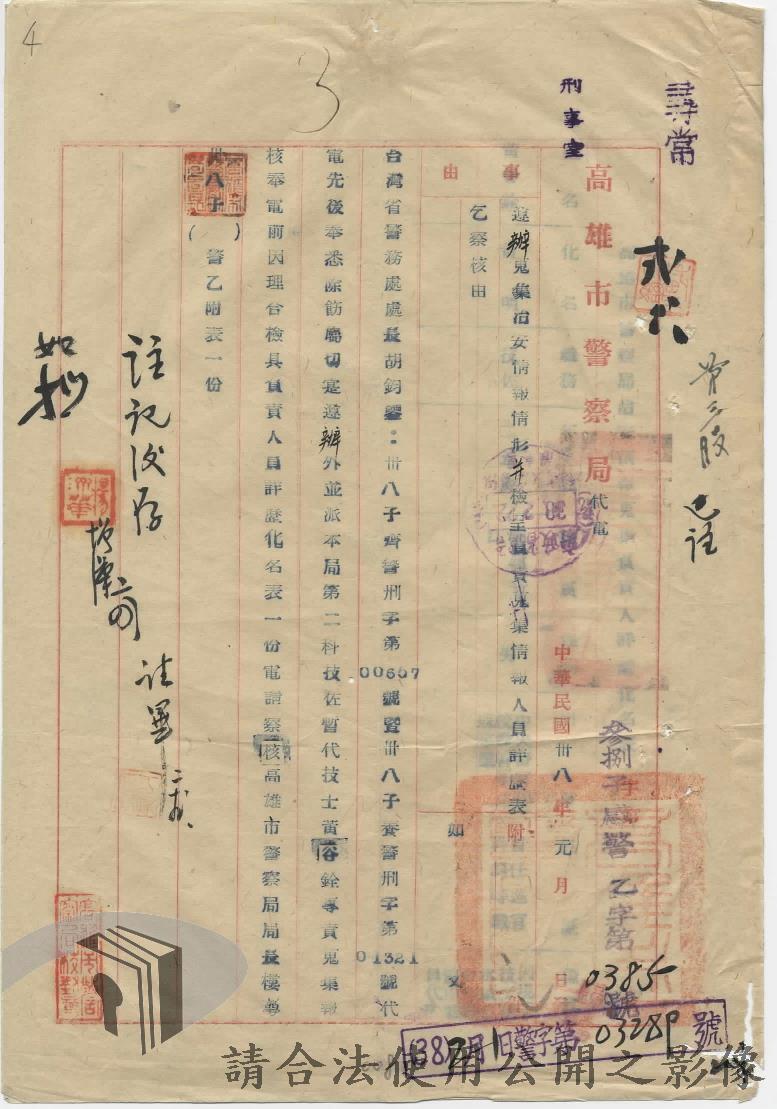 4
3
尋常
刑事室
第三股
已註
高雄市警察局代電
中華民國卅八年元月 日
參捌子 警乙字第0385號
事由
遵辦蒐集治安情報情形并檢呈負責蒐集情報人員詳歷表
乞察核由
附
如文
台灣省警務處處長胡鈞鑒:卅八子齊警刑字第00607號暨卅八子養警刑字第01321號代
電先後奉悉除飭屬切寔遵辦外並派本局第二科技佐暫代技士黃容銓專責蒐集報
核奉電前因理合檢具負責人員詳歷化名表一份電請察核高雄市警察局局長樓尊
卅八子( )警乙附表一份
註記後存
如擬
註畢
(38)2月1日警字第03289號
請合法使用公開之影像